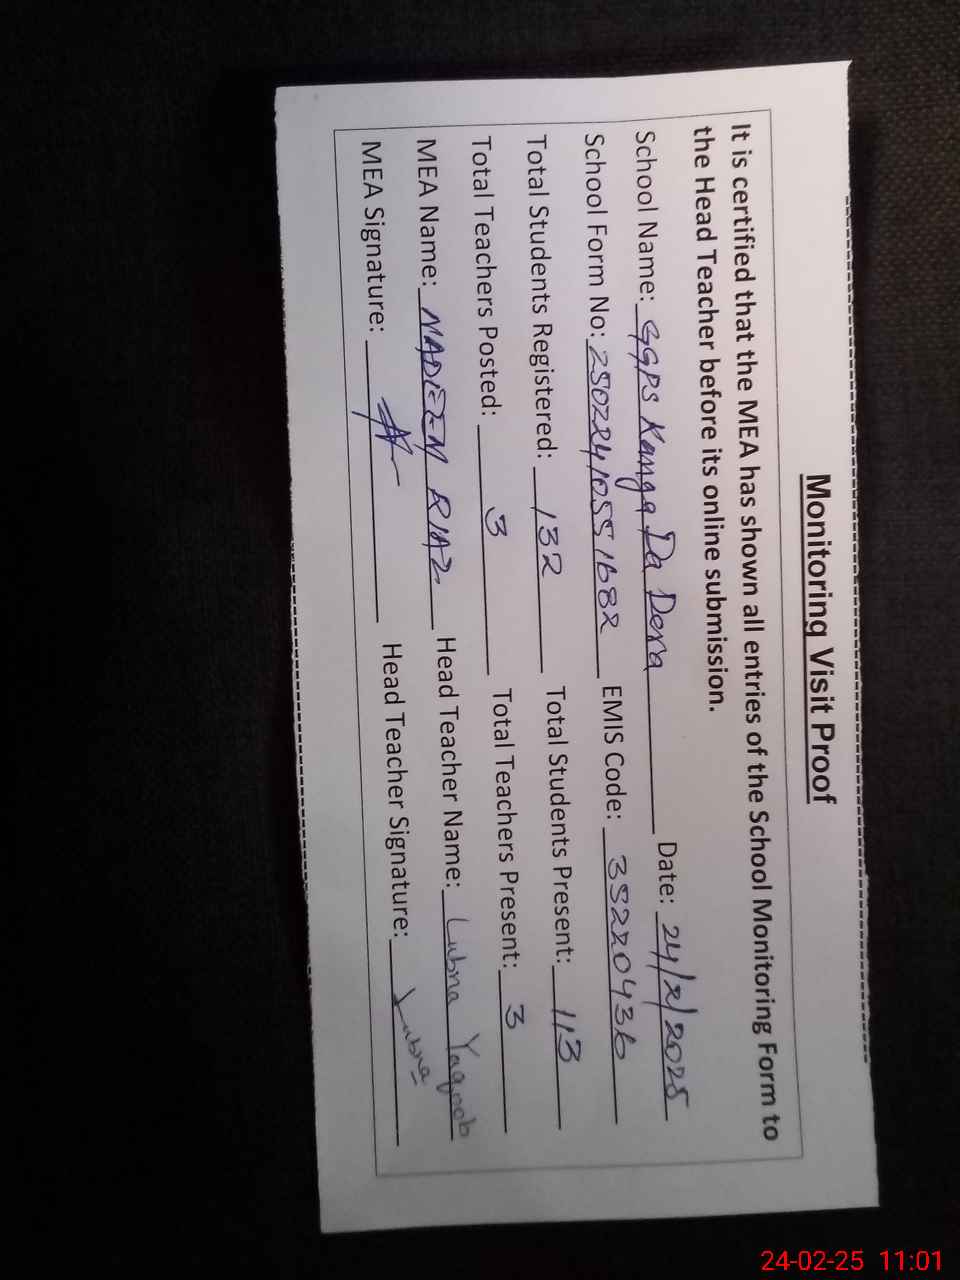 Monitoring Visit Proof
It is certified that the MEA has shown all entries of the School Monitoring Form to
the Head Teacher before its online submission.
School Name: GGPS Kanga Da Dera Date: 24/2/2025
School Form No: 25022410551682 EMIS Code: 35220436
Total Students Registered: 132 Total Students Present: 113
Total Teachers Posted: 3 Total Teachers Present: 3
MEA Name: NADEEM RIAZ Head Teacher Name: Lubna Yaqoob
MEA Signature: Head Teacher Signature: Lubna
24-02-25 11:01